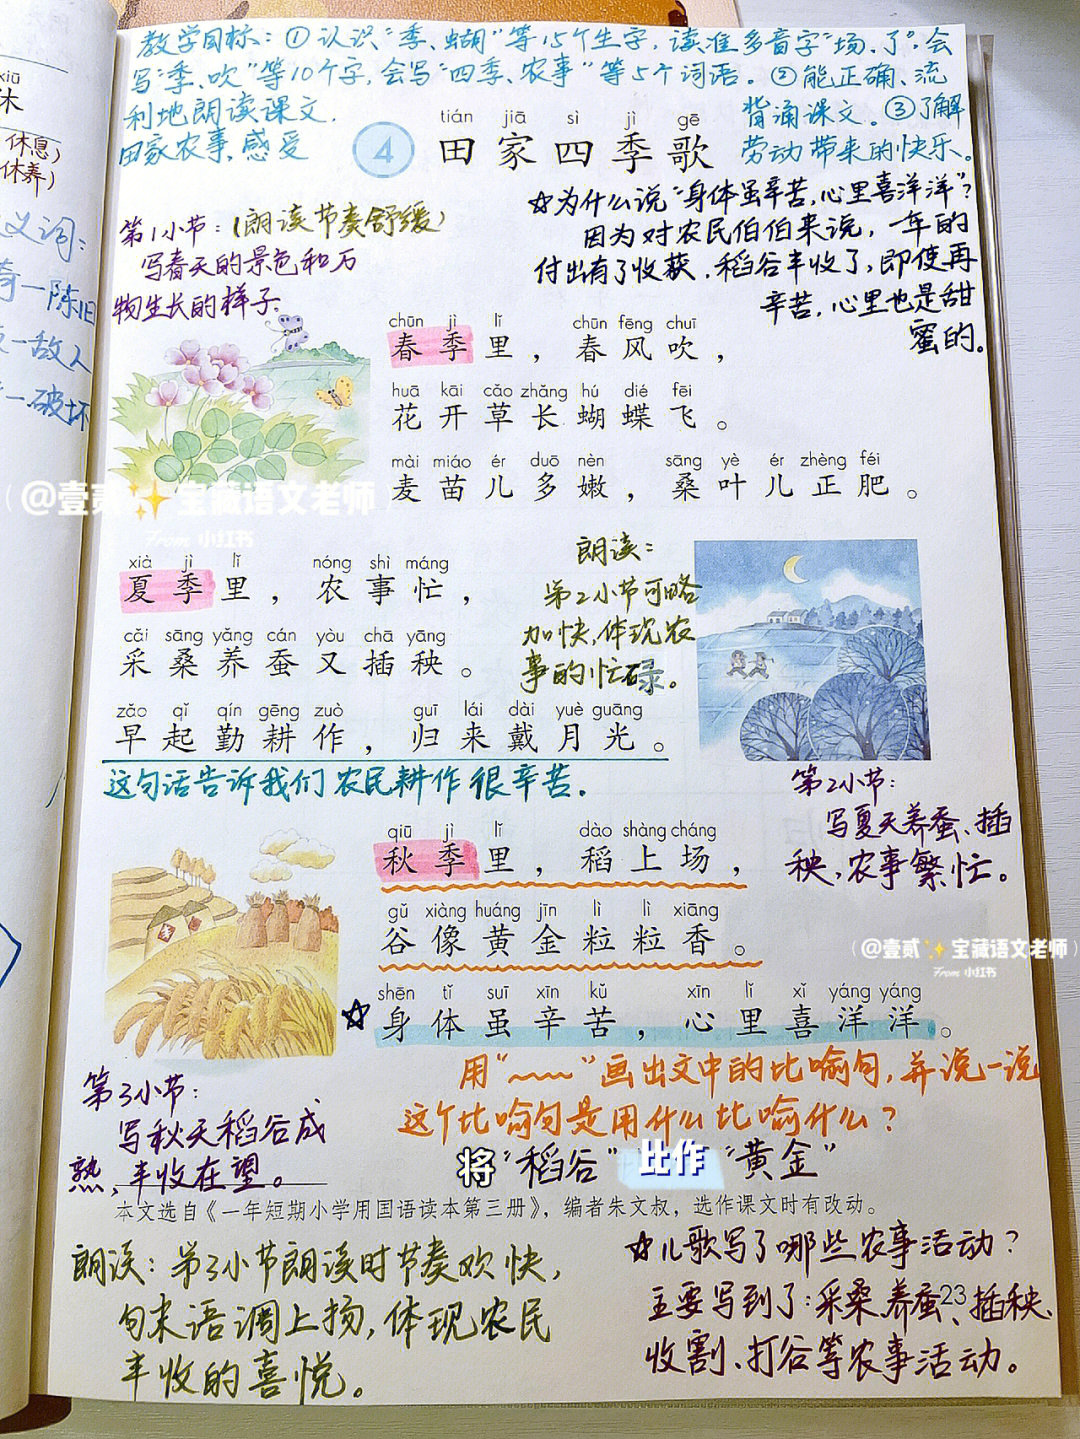 xiū
休
休息)
休养)
义词:
奇一陈旧
一敌人
一破坏
教学目标:①认识“季、蝴”等15个生字,读准多音字“场、了”。会
写“季、吹”等10个字,会写“四季、农事”等5个词语。②能正确、流
利地朗读课文. 背诵课文。③了解
田家农事,感受 劳动带来的快乐。
tián jiā sì jì gē
4 田家四季歌
☆为什么说“身体虽辛苦,心里喜洋洋”?
因为对农民伯伯来说,一年的
付出有了收获,稻谷丰收了,即使再
辛苦,心里也是甜
蜜的。
第1小节:(朗读节奏舒缓)
写春天的景色和万
物生长的样子.
chūn jì lǐ chūn fēng chuī
春季里,春风吹,
huā kāi cǎo zhǎng hú dié fēi
花开草长蝴蝶飞。
mài miáo ér duō nèn sāng yè ér zhèng féi
麦苗儿多嫩,桑叶儿正肥。
(@壹贰✨宝藏语文老师)
From 小红书
xià jì lǐ nóng shì máng
夏季里,农事忙,
cǎi sāng yǎng cán yòu chā yāng
采桑养蚕又插秧。
zǎo qǐ qín gēng zuò guī lái dài yuè guāng
早起勤耕作,归来戴月光。
朗读:
第2小节可略
加快,体现农
事的忙碌。
这句话告诉我们农民耕作很辛苦.
第2小节:
写夏天养蚕、插
秧,农事繁忙。
qiū jì lǐ dào shàng cháng
秋季里,稻上场,
gǔ xiàng huáng jīn lì lì xiāng
谷像黄金粒粒香。
(@壹贰✨宝藏语文老师)
From 小红书
shēn tǐ suī xīn kǔ xīn lǐ xǐ yáng yáng
☆身体虽辛苦,心里喜洋洋。
用“﹏﹏”画出文中的比喻句,并说一说
这个比喻句是用什么比喻什么?
将“稻谷”比作“黄金”
第3小节:
写秋天稻谷成
熟,丰收在望。
本文选自《一年短期小学用国语读本第三册》,编者朱文叔,选作课文时有改动。
朗读:第3小节朗读时节奏欢快,
句末语调上扬,体现农民
丰收的喜悦。
☆儿歌写了哪些农事活动?
主要写到了:采桑、养蚕、插秧、
收割、打谷等农事活动。
23